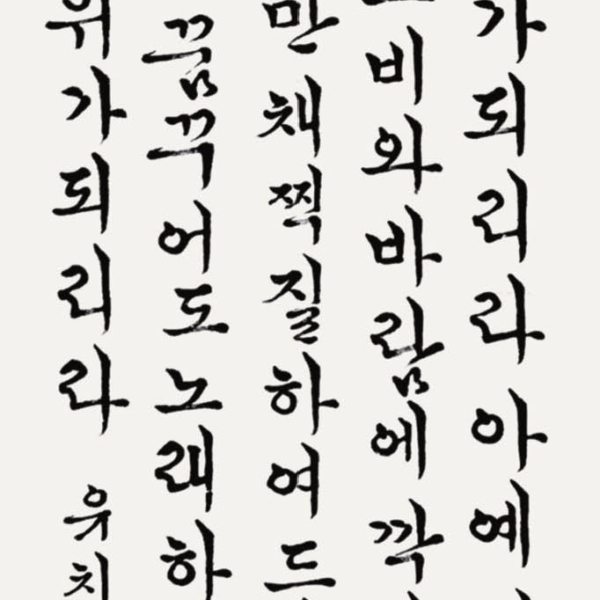 가되리라 아예
비와바람에깍
만채찍질하여드
꿈꾸어도노래하
위가되리라 유치